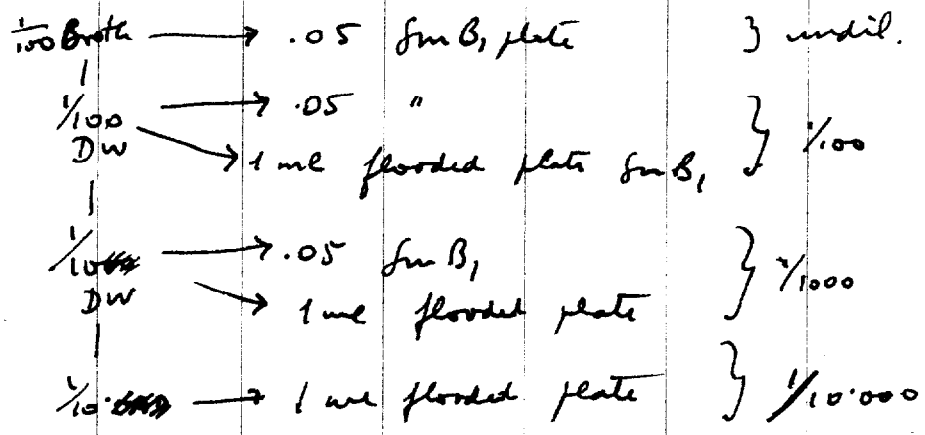 1/100 Broth → .05 Sm B1 plate } undil.
1/100 → .05 "
DW → 1 ml flooded plate Sm B1 } 1/100
1/10 → .05 Sm B1
DW → 1 ml flooded plate } 1/1000
1/10 → 1 ml flooded plate } 1/10.000